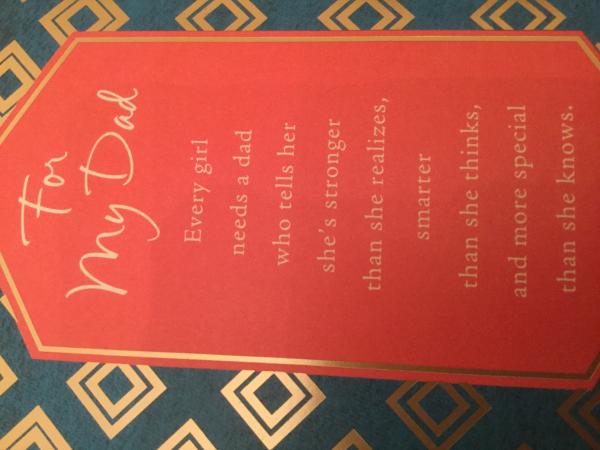 For
My Dad
Every girl
needs a dad
who tells her
she's stronger
than she realizes,
smarter
than she thinks,
and more special
than she knows.